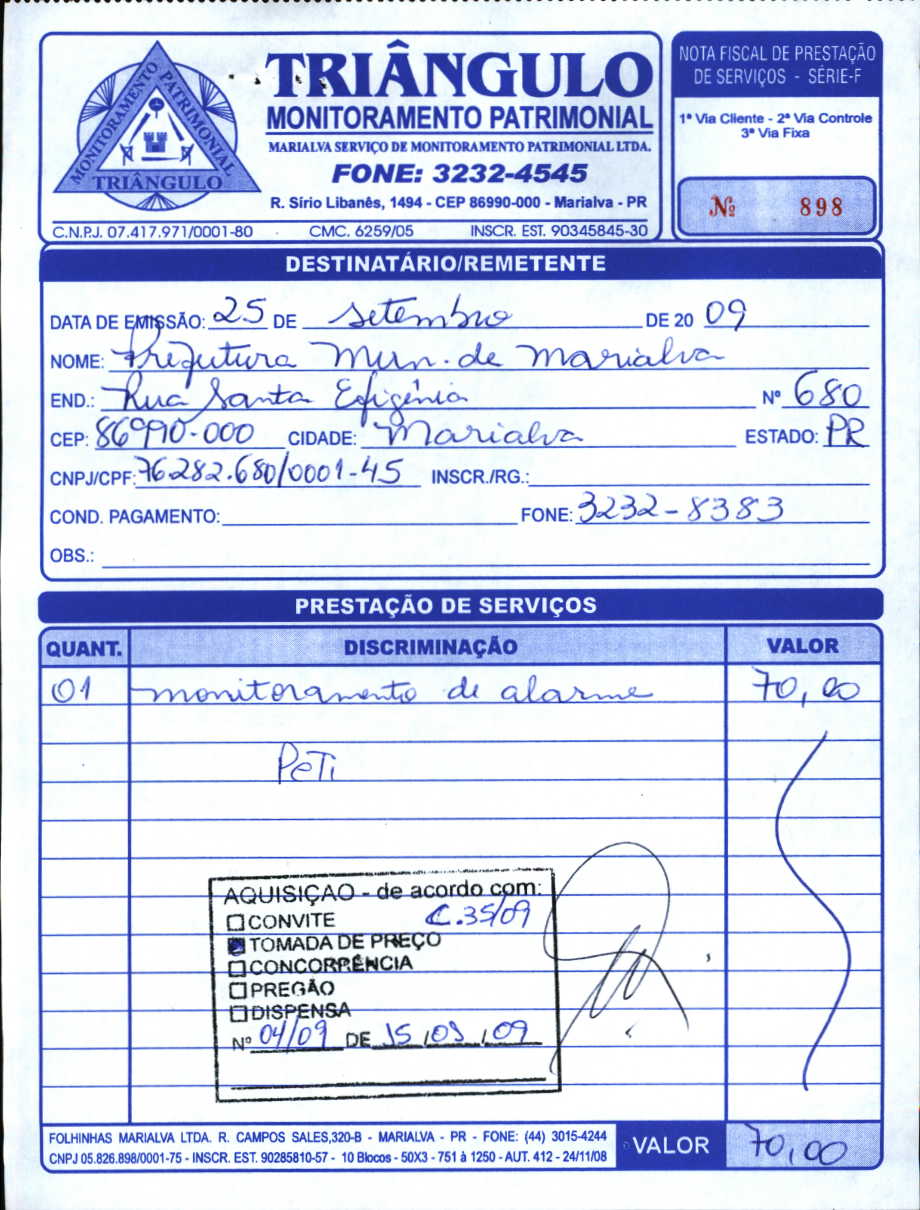 MONITORAMENTO PATRIMONIAL
TRIÂNGULO
TRIÂNGULO
MONITORAMENTO PATRIMONIAL
MARIALVA SERVIÇO DE MONITORAMENTO PATRIMONIAL LTDA.
FONE: 3232-4545
R. Sírio Libanês, 1494 - CEP 86990-000 - Marialva - PR
C.N.P.J. 07.417.971/0001-80 CMC. 6259/05 INSCR. EST. 90345845-30
NOTA FISCAL DE PRESTAÇÃO
DE SERVIÇOS - SÉRIE-F
1ª Via Cliente - 2ª Via Controle
3ª Via Fixa
Nº 898
DESTINATÁRIO/REMETENTE
DATA DE EMISSÃO: 25 DE setembro DE 20 09
NOME: Prefeitura Mun. de Marialva
END.: Rua Santa Efigênia Nº 680
CEP: 86990-000 CIDADE: Marialva ESTADO: PR
CNPJ/CPF: 76.282.680/0001-45 INSCR./RG.:
COND. PAGAMENTO: FONE: 3232-8383
OBS.:
PRESTAÇÃO DE SERVIÇOS
QUANT. DISCRIMINAÇÃO VALOR
01 monitoramento de alarme 70,00
PeTi
AQUISIÇAO - de acordo com:
CONVITE C.35/09
TOMADA DE PREÇO
CONCORRÊNCIA
PREGÃO
DISPENSA
Nº 04/09 DE 15/03/09
FOLHINHAS MARIALVA LTDA. R. CAMPOS SALES,320-B - MARIALVA - PR - FONE: (44) 3015-4244
CNPJ 05.826.898/0001-75 - INSCR. EST. 90285810-57 - 10 Blocos - 50X3 - 751 à 1250 - AUT. 412 - 24/11/08
VALOR 70,00